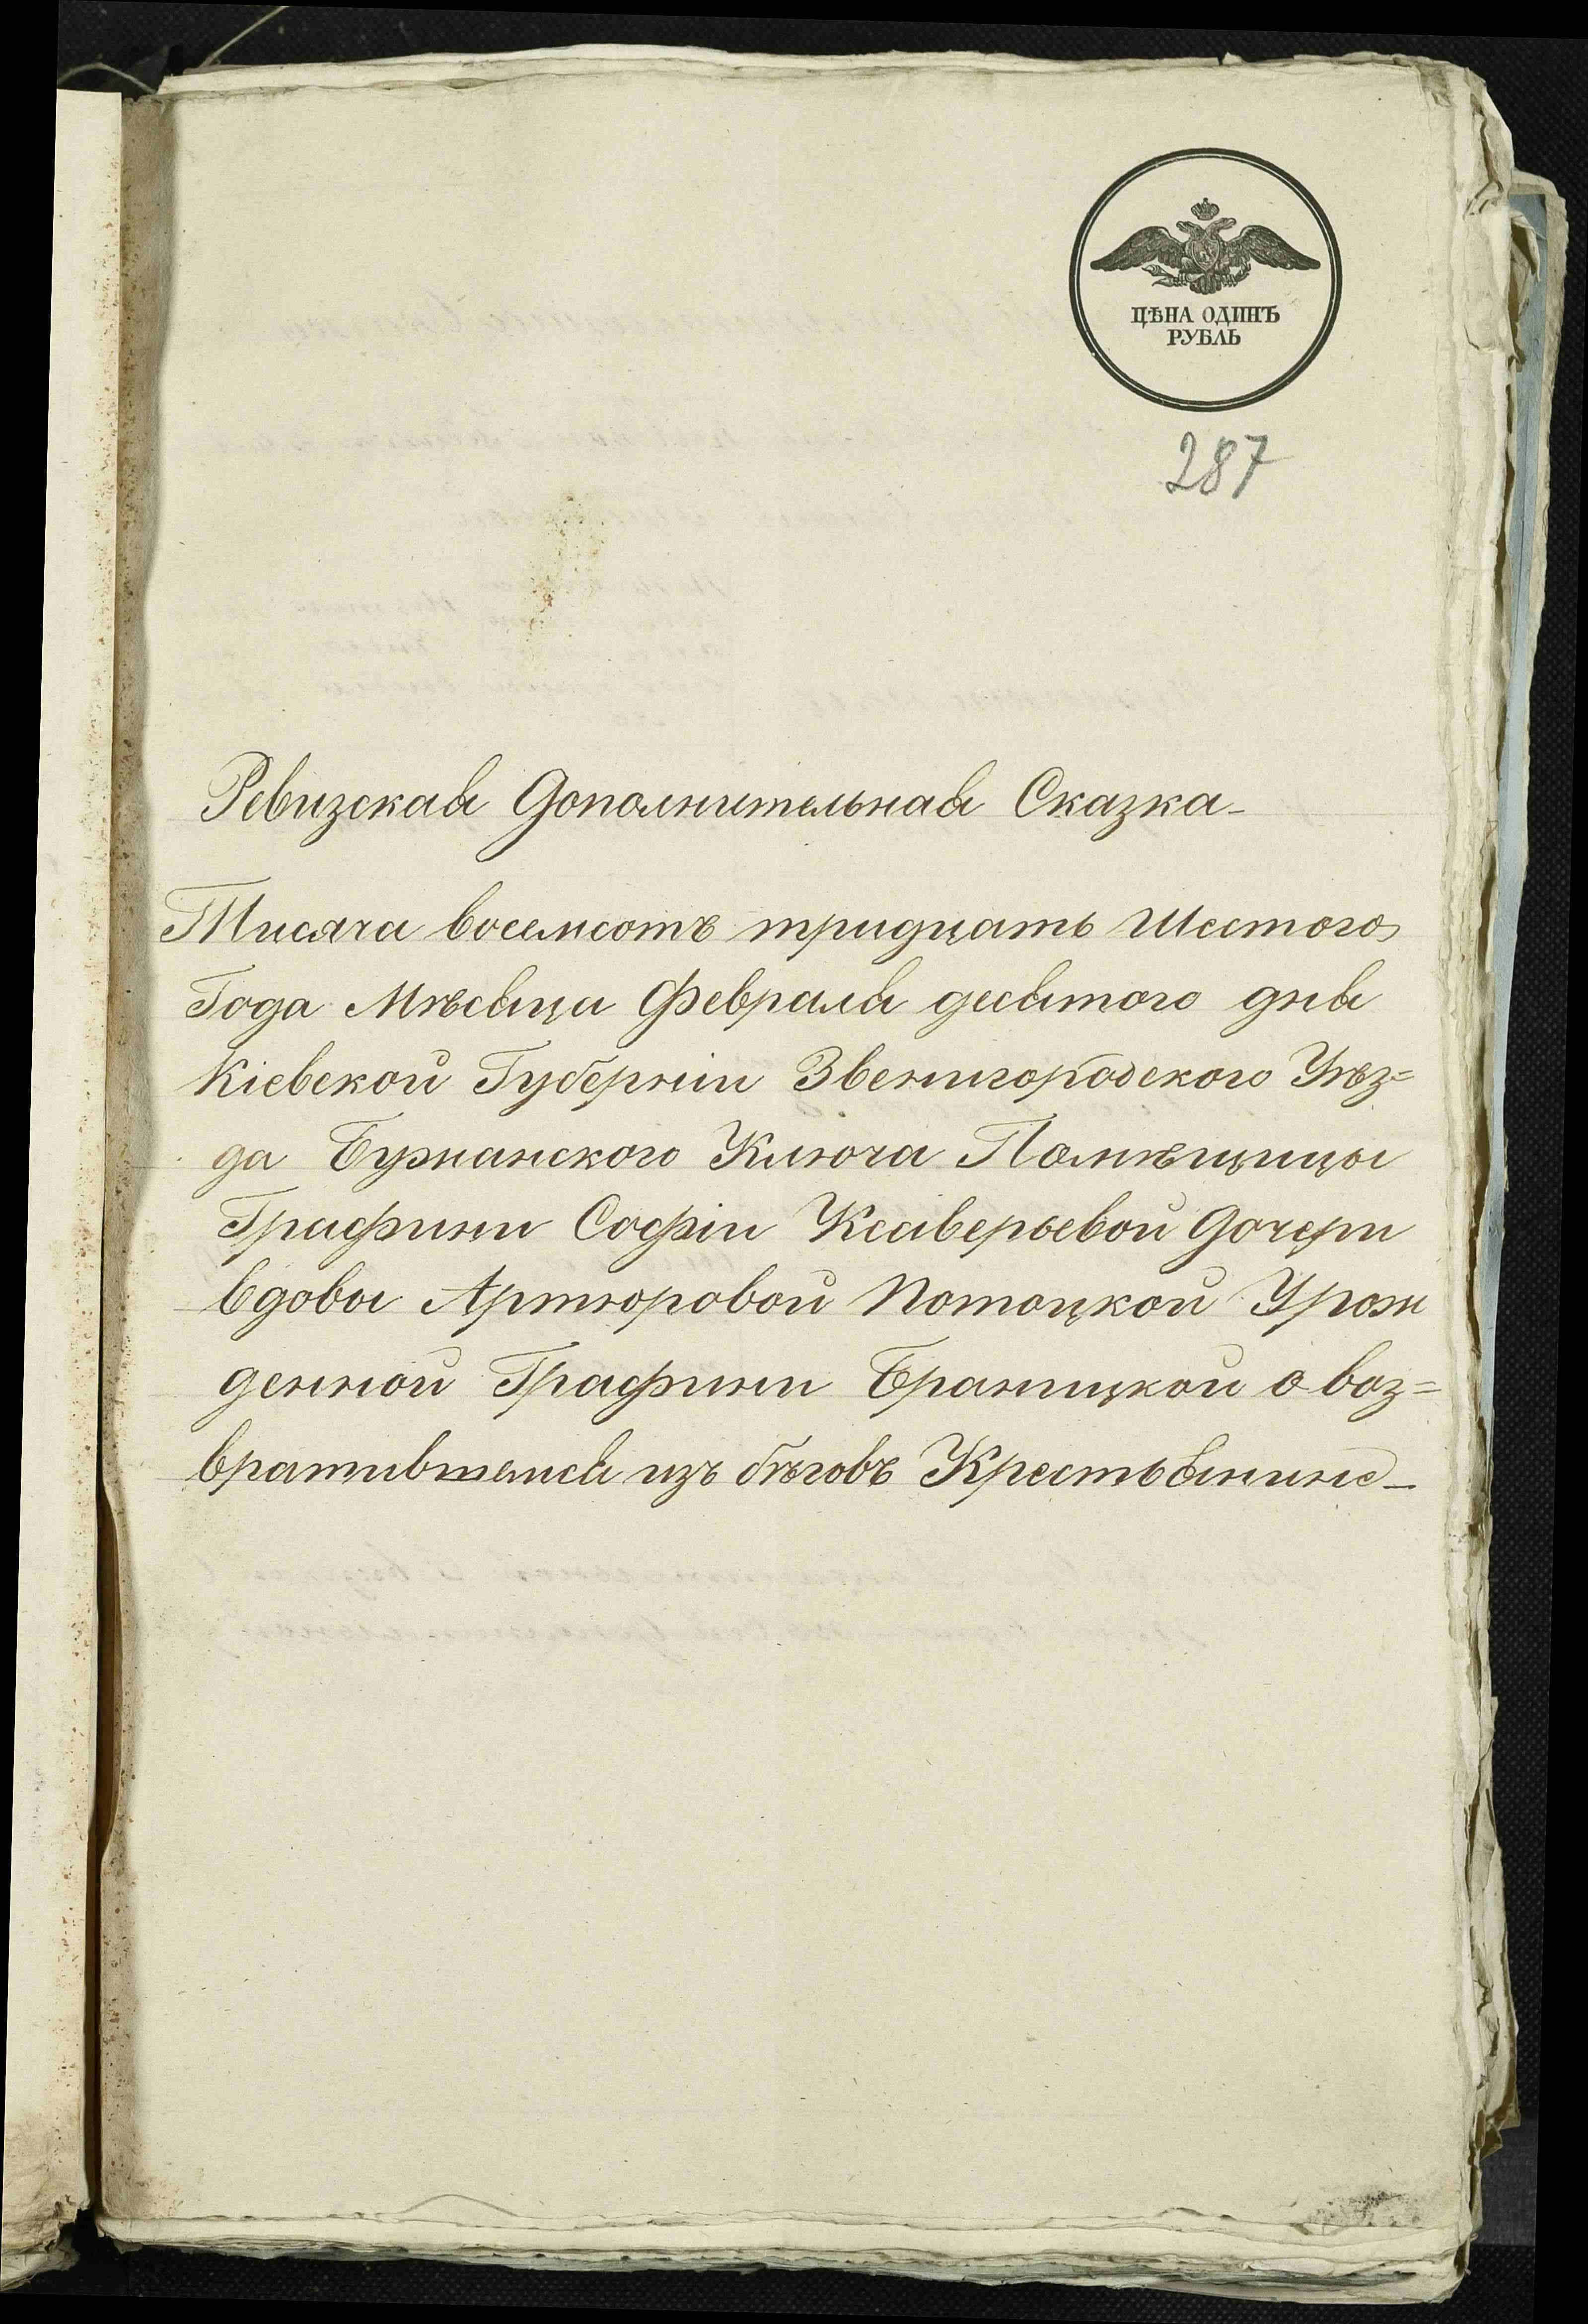 ЦѢНА ОДИНЪ
РУБЛЬ
287
Ревизская Дополнительная Сказка
Тисяча восемсотъ тридцать Шестого
Года Мѣсяца Февраля десятого дня
Кіевской Губерніи Звенигородского Уѣз=
да Бужанского Ключа Помѣщицы
Графини Софіи Ксаверьевой Дочери
Вдовы Артюровой Потоцкой Урож
денной Графини Браницкой о воз=
вратившемся изъ бѣговъ Крестьянине